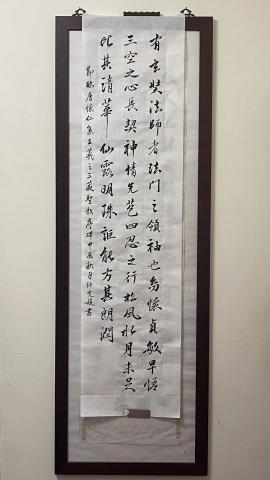 有玄奘法師者法門之領袖也㓜懷貞敏早悟
三空之心長契神情先苞四忍之行松風水月未足
比其清華仙露明珠詎能方其朗潤
節臨唐懷仁集王羲之三藏聖教序碑甲辰秋月許文媛書